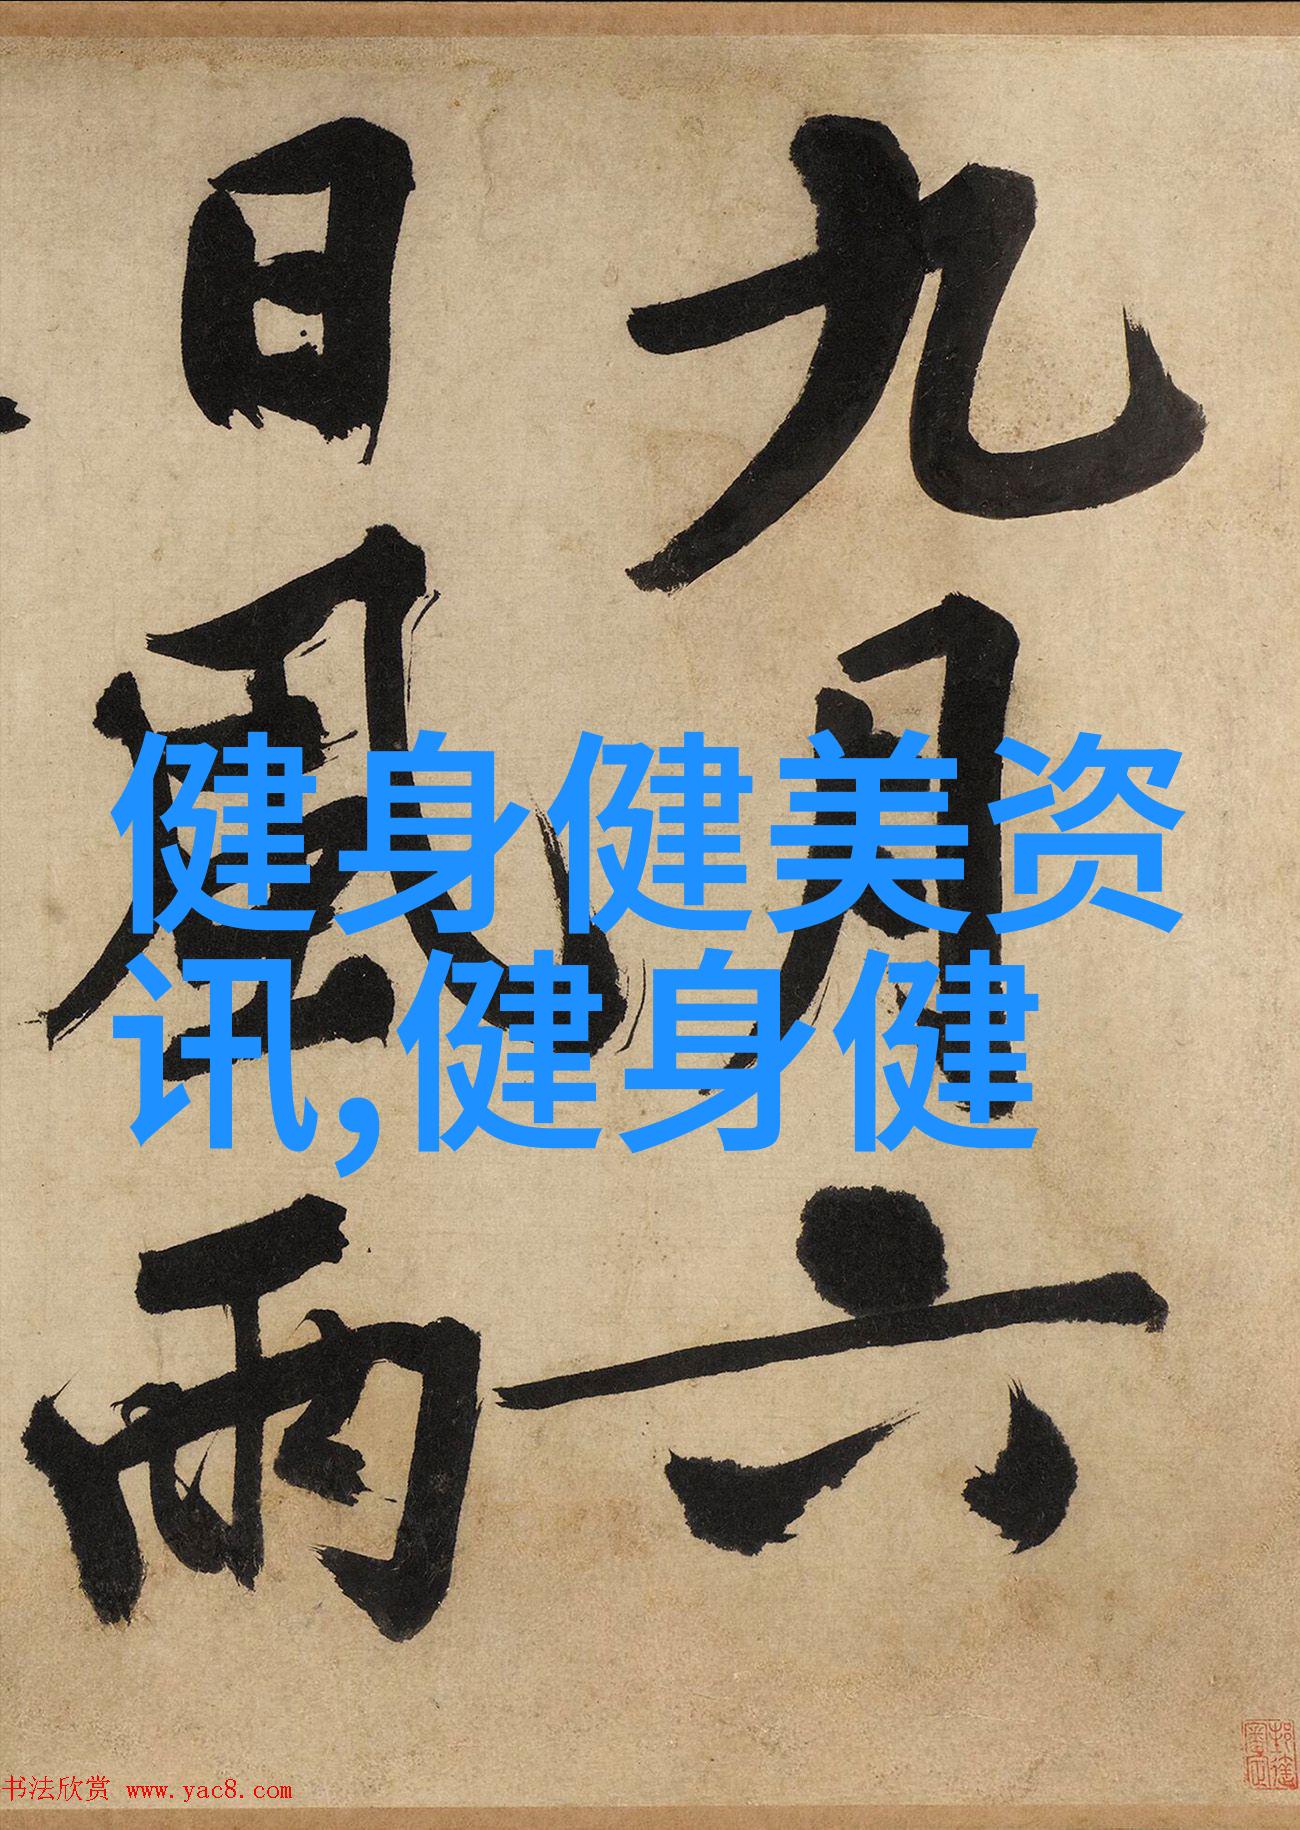 九月六
日风雨
健身健美资
讯,健身健
书法欣赏 www.yac8.com